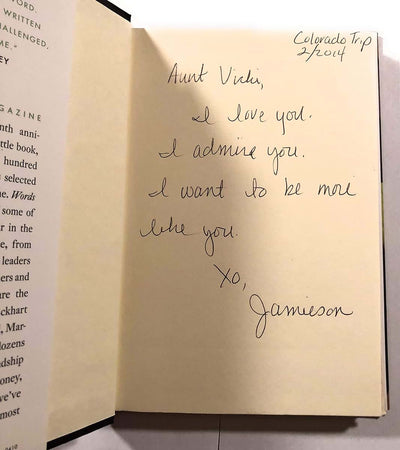 ORD.
WRITTEN
HALLENGED.
ME."
EY
GAZINE
nth anni-
ttle book,
hundred
selected
e. Words
some of
r in the
e, from
leaders
ers and
are the
ckhart
, Mar-
dozens
ndship
oney,
we've
most
Colorado Trip
2/2014
Aunt Vicki,
I love you.
I admire you.
I want to be more
like you.
XO,
Jamieson